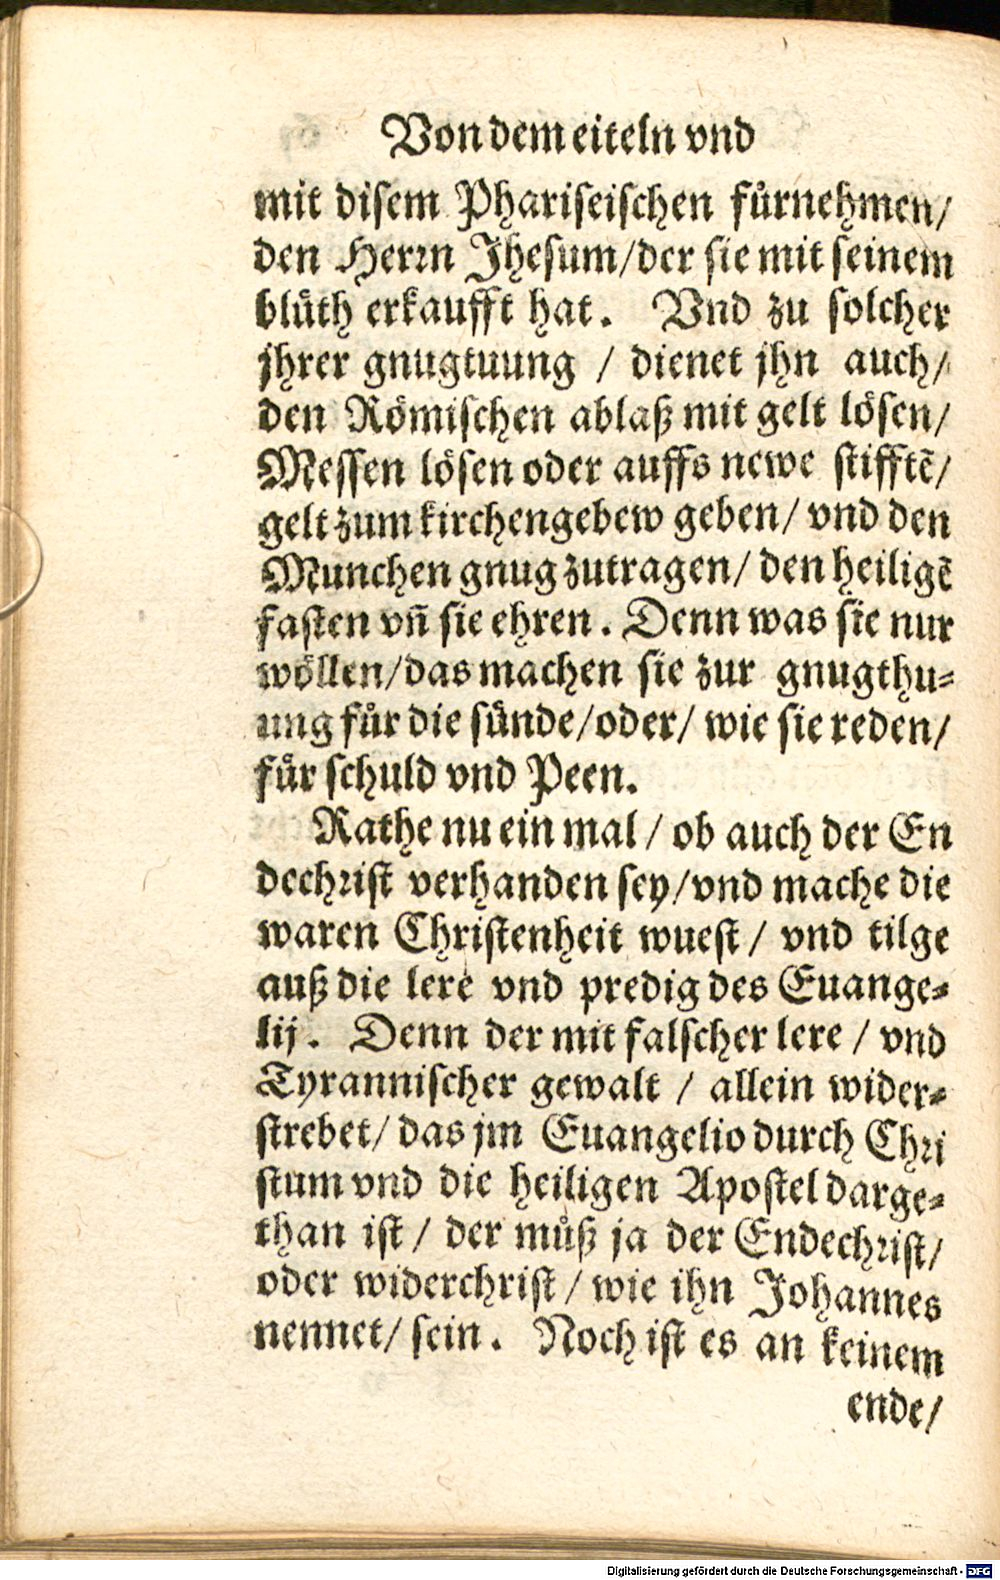 Von dem eiteln vnd
mit disem Phariseischen fuͤrnehmen/
den Herrn Jhesum/der sie mit seinem
bluͤth erkaufft hat. Vnd zu solcher
jhrer gnugtuung / dienet jhn auch/
den Roͤmischen ablaß mit gelt loͤsen/
Messen loͤsen oder auffs newe stifftē/
gelt zum kirchengebew geben/ vnd den
Munchen gnug zutragen/ den heiligē
fasten vñ sie ehren. Denn was sie nur
woͤllen/das machen sie zur gnugthu⸗
ung fuͤr die suͤnde/oder/ wie sie reden/
fuͤr schuld vnd Peen.
Rathe nu ein mal / ob auch der En
dechrist verhanden sey/vnd mache die
waren Christenheit wuest/ vnd tilge
auß die lere vnd predig des Euange⸗
lij. Denn der mit falscher lere / vnd
Tyrannischer gewalt / allein wider⸗
strebet/ das jm Euangelio durch Chri
stum vnd die heiligen Apostel darge⸗
than ist/ der muͤß ja der Endechrist/
oder widerchrist/ wie ihn Johannes
nennet/ sein. Noch ist es an keinem
ende/
Digitalisierung gefördert durch die Deutsche Forschungsgemeinschaft - DFG